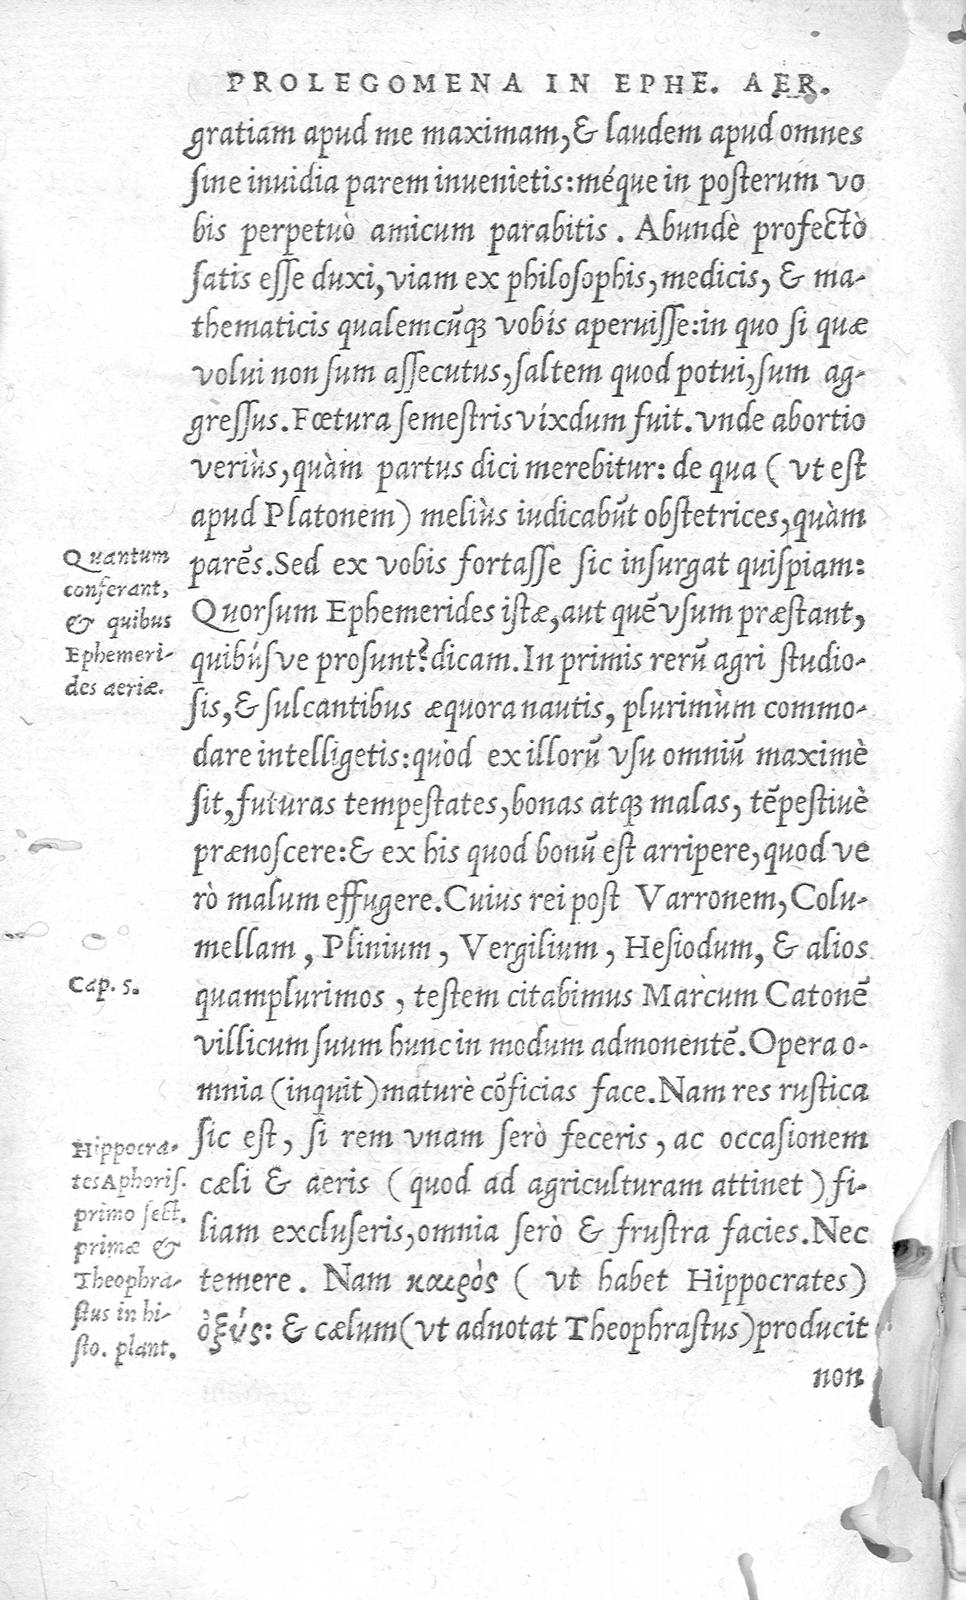 PROLEGOMENA IN EPHE. AER.
gratiam apud me maximam, & laudem apud omnes
sine inuidia parem inuenietis: méque in posterum vo
bis perpetuò amicum parabitis. Abundè profectò
satis esse duxi, viam ex philosophis, medicis, & ma-
thematicis qualemcũqꝫ vobis aperuisse: in quo si quæ
volui non sum assecutus, saltem quod potui, sum ag-
gressus. Fœtura semestris vixdum fuit. vnde abortio
veriùs, quàm partus dici merebitur: de qua ( vt est
apud Platonem) meliùs iudicabũt obstetrices, quàm
parẽs. Sed ex vobis fortasse sic insurgat quispiam:
Quorsum Ephemerides istæ, aut quẽ vsum præstant,
quibúsve prosunt? dicam. In primis rerũ agri studio-
sis, & sulcantibus æquora nautis, plurimùm commo-
dare intelligetis: quòd ex illorũ vsu omniũ maximè
sit, futuras tempestates, bonas atqꝫ malas, tẽpestiuè
prænoscere: & ex his quod bonũ est arripere, quod ve
rò malum effugere. Cuius rei post Varronem, Colu-
mellam, Plinium, Vergilium, Hesiodum, & alios
quamplurimos, testem citabimus Marcum Catonẽ
villicum suum hunc in modum admonentẽ. Opera o-
mnia (inquit) maturè cõficias face. Nam res rustica
sic est, si rem vnam serò feceris, ac occasionem
cæli & aeris ( quod ad agriculturam attinet ) fi-
liam excluseris, omnia serò & frustra facies. Nec
temere. Nam καιρὸς ( vt habet Hippocrates)
ὀξύς: & cælum (vt adnotat Theophrastus) producit
non
Quantum
conferant,
& quibus
Ephemeri-
des aeriæ.
Cap. 5.
Hippocra-
tes Aphoris.
primo sect.
primæ &
Theophra-
stus in hi-
sto. plant.